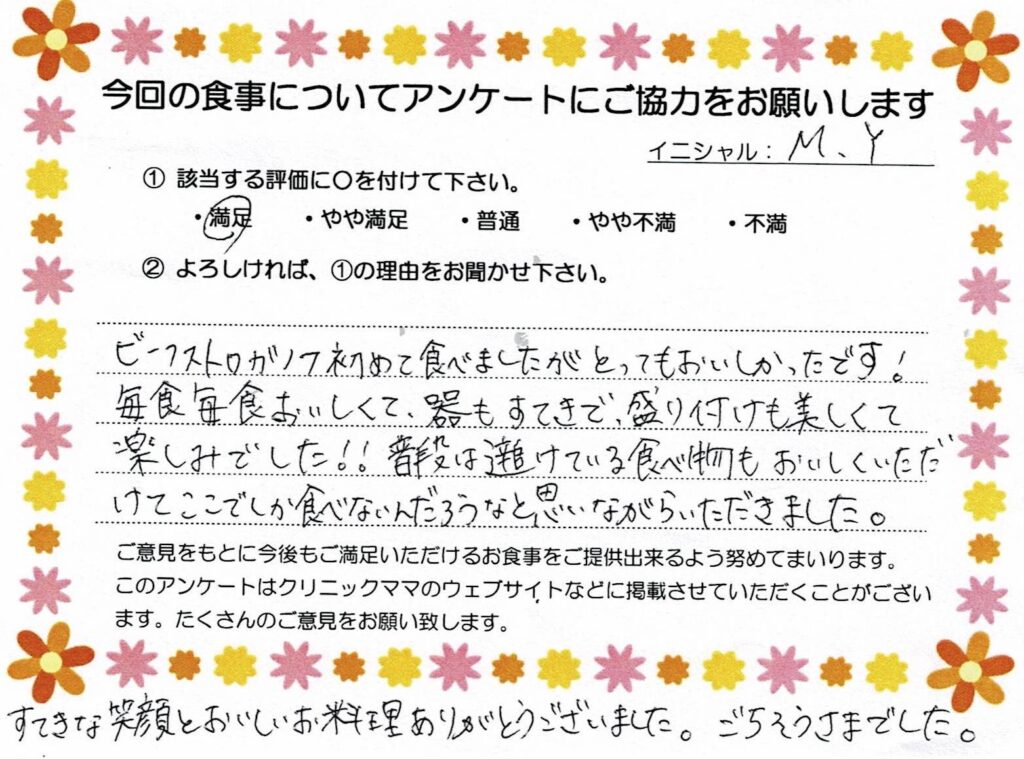 今回の食事についてアンケートにご協力をお願いします
イニシャル： M、Y
① 該当する評価に○を付けて下さい。
・満足 ・やや満足 ・普通 ・やや不満 ・不満
② よろしければ、①の理由をお聞かせ下さい。
ビーフストロガノフ初めて食べましたがとってもおいしかったです！
毎食毎食おいしくて、器もすてきで、盛り付けも美しくて
楽しみでした！！普段は避けている食べ物もおいしくいただ
けてここでしか食べないんだろうなと思いながらいただきました。
ご意見をもとに今後もご満足いただけるお食事をご提供出来るよう努めてまいります。
このアンケートはクリニックママのウェブサイトなどに掲載させていただくことがござい
ます。たくさんのご意見をお願い致します。
すてきな笑顔とおいしいお料理ありがとうございました。ごちそうさまでした。